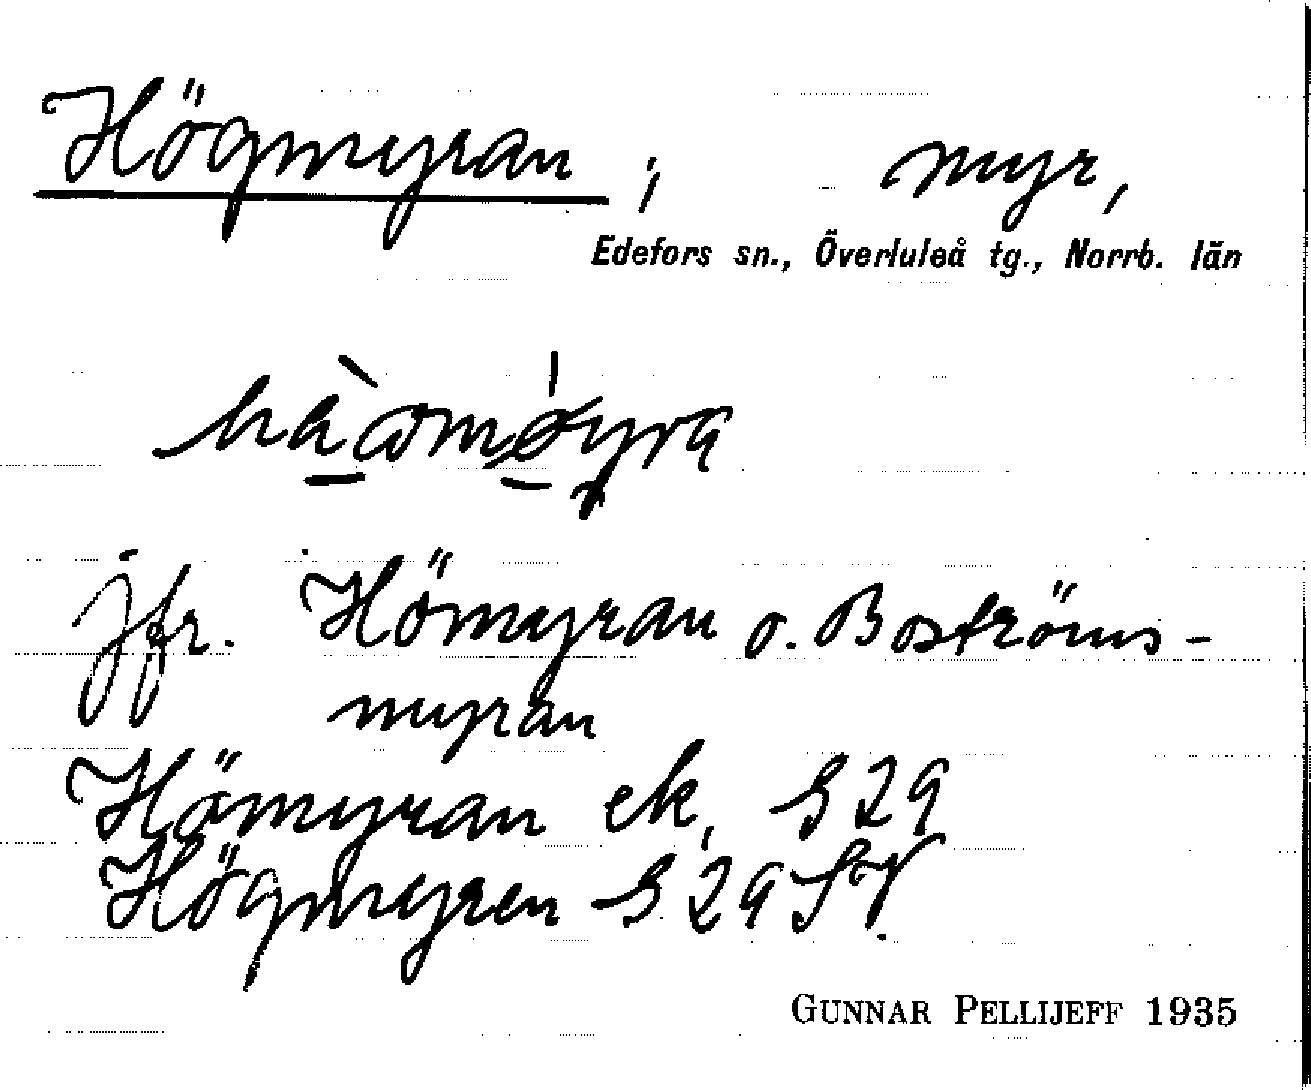 Högmyran, myr,
Edefors sn., Överluleå tg., Norrb. län
jfr. Hömyran o. Boströms-
myran
Hömyran ek, S 29
Högmyren S 29 SV.
GUNNAR PELLIJEFF 1935